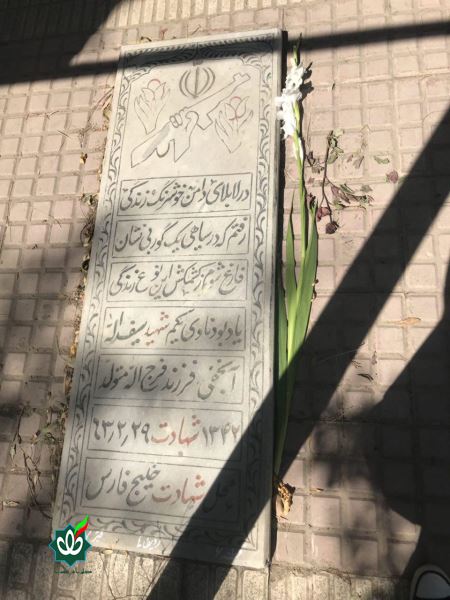 در لابلای دامن خوشرنگ زندگی
رفتم که در سیاهی یک گور بی نشان
فارغ شوم ز کشمکش این نوع زندگی
یادبود ناوی یکم شهید سیف اله
فرزند فرج اله متولد
۱۳۴۲ شهادت ۶۳٫۲٫۲۹
محل شهادت خلیج فارس